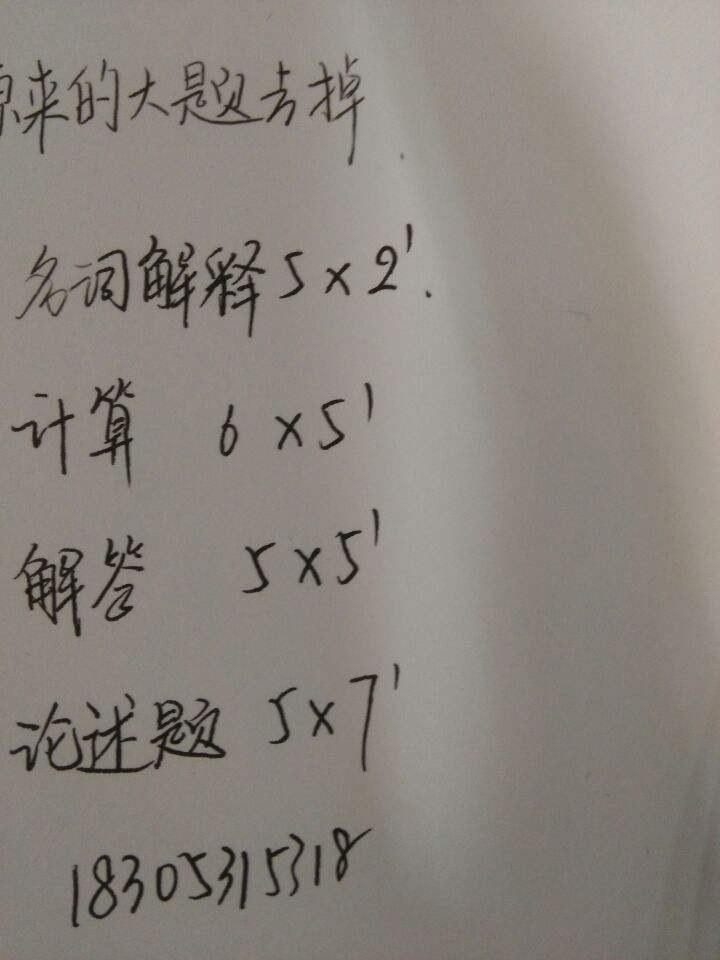 原来的大题去掉.
名词解释 5×2'.
计算 6×5'
解答 5×5'
论述题 5×7'
18305315318